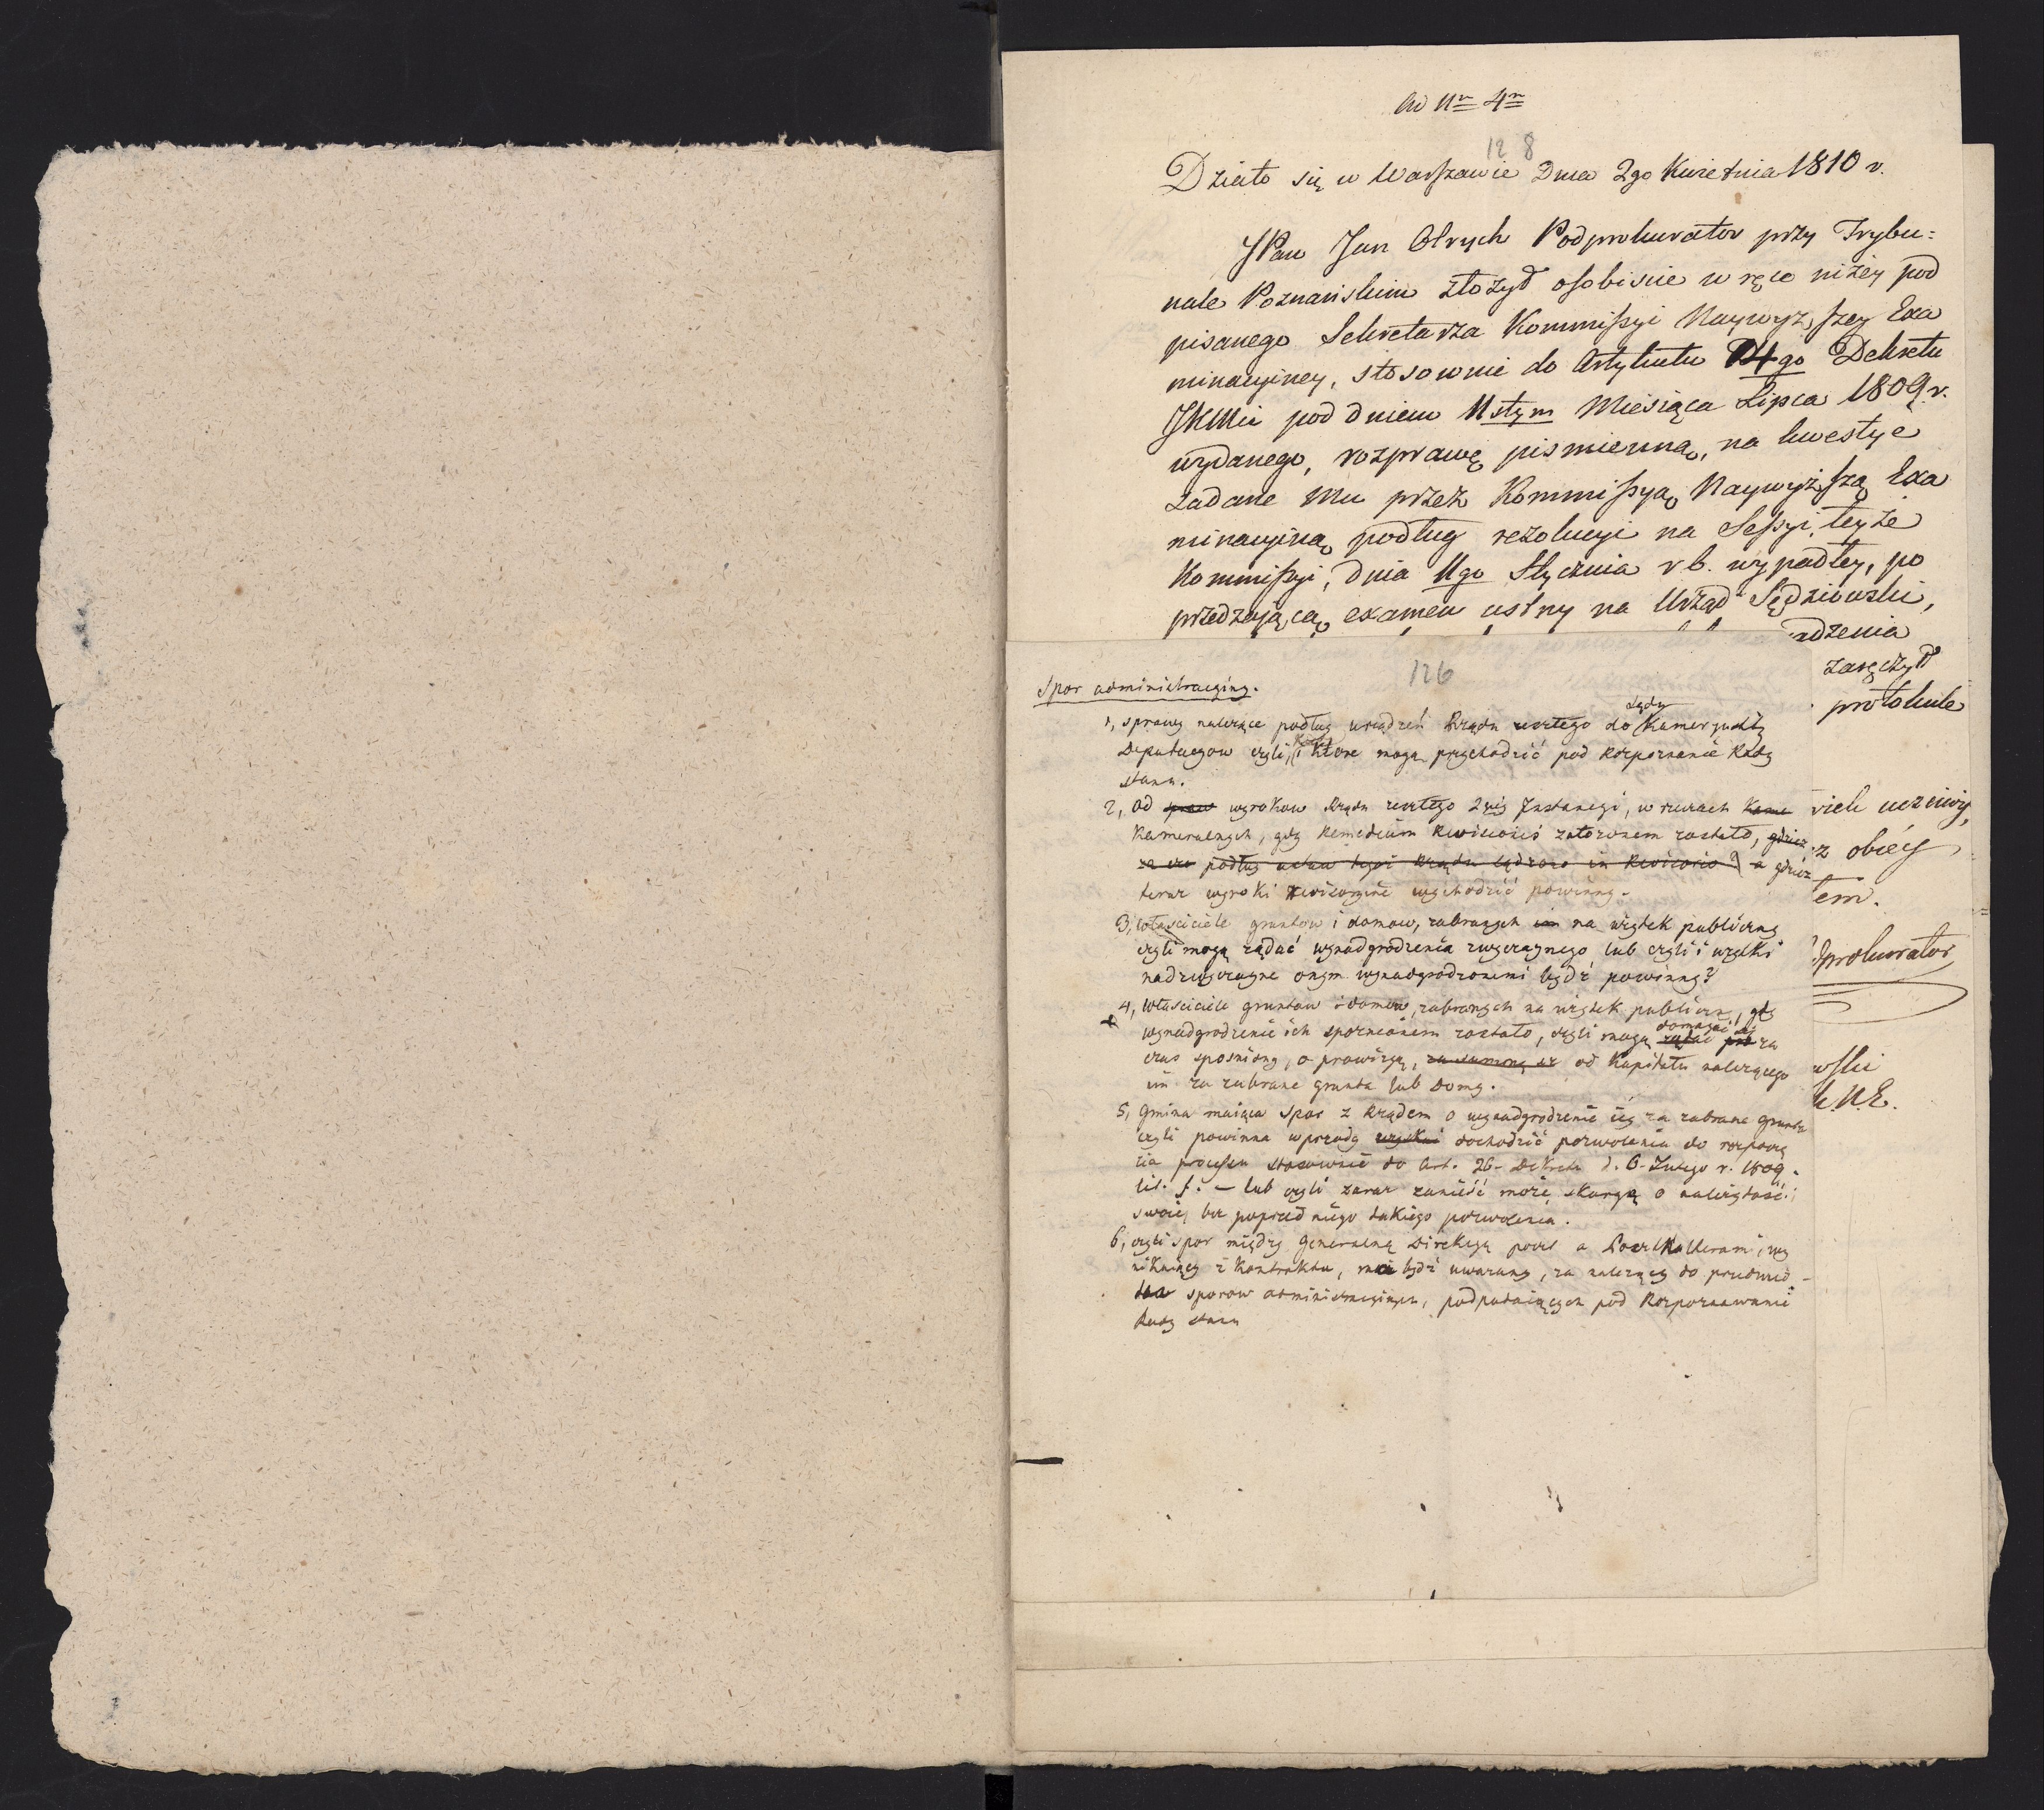 Ad Nr 4m
128
Działo się w Warszawie Dnia 2go Kwietnia 1810 r.
JPan Jan Olrych Podprokurator przy Trybu=
nale Poznańskim złożył osobiscie w ręce niżey pod
pisanego Sekretarza Kommissyi Naywyższey Exa
minacyiney, stosownie do Artykułu 14go Dekretu
JKMci pod dniem 11stym Miesiąca Lipca 1809 r.
wydanego, rozprawę pismienną, na kwestye
zadane mu przez Kommissyą Naywyższą Exa
minacyiną podług rezolucyi na Sessyi teyże
Kommissyi, dnia 11go Stycznia r b. wypadłey, po
przedzaiącą examen ustny na Urząd Sędziowski,
adzenia
zaręczył
protokule
126
Spor administracyiny.
1, sprawy należące podług urządzeń Rządu zeszłego do Sądu Kamer Justiz
Deputacyow czyli i które mogą przychodzić pod Rozpoznanie Rady
stanu.
2, od spraw wyrokow Rządu zeszłego 2giey Instancyi, w rzeczach Kame
Kameralnych, gdy Remedium Rewisorii założonem zostało, gdzie
podług ustaw Rządu a gdzie
teraz wyroki rewizoryine wychodzić powinny.
3, właściciele gruntow i domow, zabranych im na użytek publiczny
czyli mogą żądać wynadgrodzenia zwyczaynego lub czyli i użytki
nadzwyczayne onym wynadgrodzonemi bydź powinny?
4, właściciele gruntow i domow, zabranych na użytek publiczn, gdy
wynadgrodzenie ich spoznionem zostało, czyli mogą żądać domagać się za
czas spozniony, o prowizyą, za summę od Kapitału należącego
im za zabrane grunta lub domy.
5, Gmina maiąca spor z Rządem o wynadgrodzenie iey za zabrane grunta
czyli powinna wprzody uzyskać dochodzić pozwolenia do rozpoczę
cia processu stosownie do Art. 26- Dekretu d. 6- Lutego r. 1809.
lit. f. – lub czyli zaraz zanieść może skargę o należytość
swoię bez poprzedniego takiego pozwolenia.
6, czyli spor między Generalną Direkcyą poczt a Poczthalterami, wy
nikaiący z Kontraktu, ma bydź uważany, za należący do przedmio-
tow sporow administracyinych, podpadaiących pod Rozpoznawanie
Rady stanu
wiek uczciwy,
z obiey
tem.
dprokurator
wski
K.N.E.